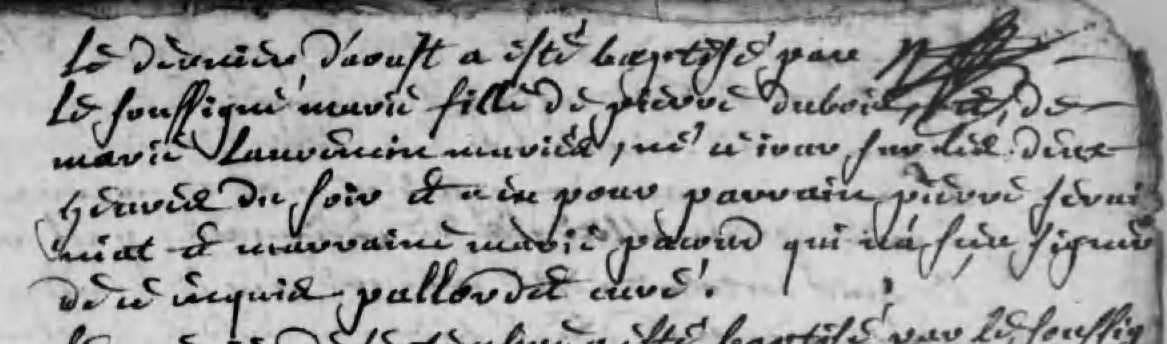 Le dernier d'aoust a esté baptisé par
Le soussigné marie fille de pierre dubois, & de
marie Laurencin mariés, né ce jour sur les deux
heures du soir et a eu pour parrain pierre
et marraine marie qui n'a sçeu signer
de ce enquis pallordet curé.
esté baptisé par le soussig